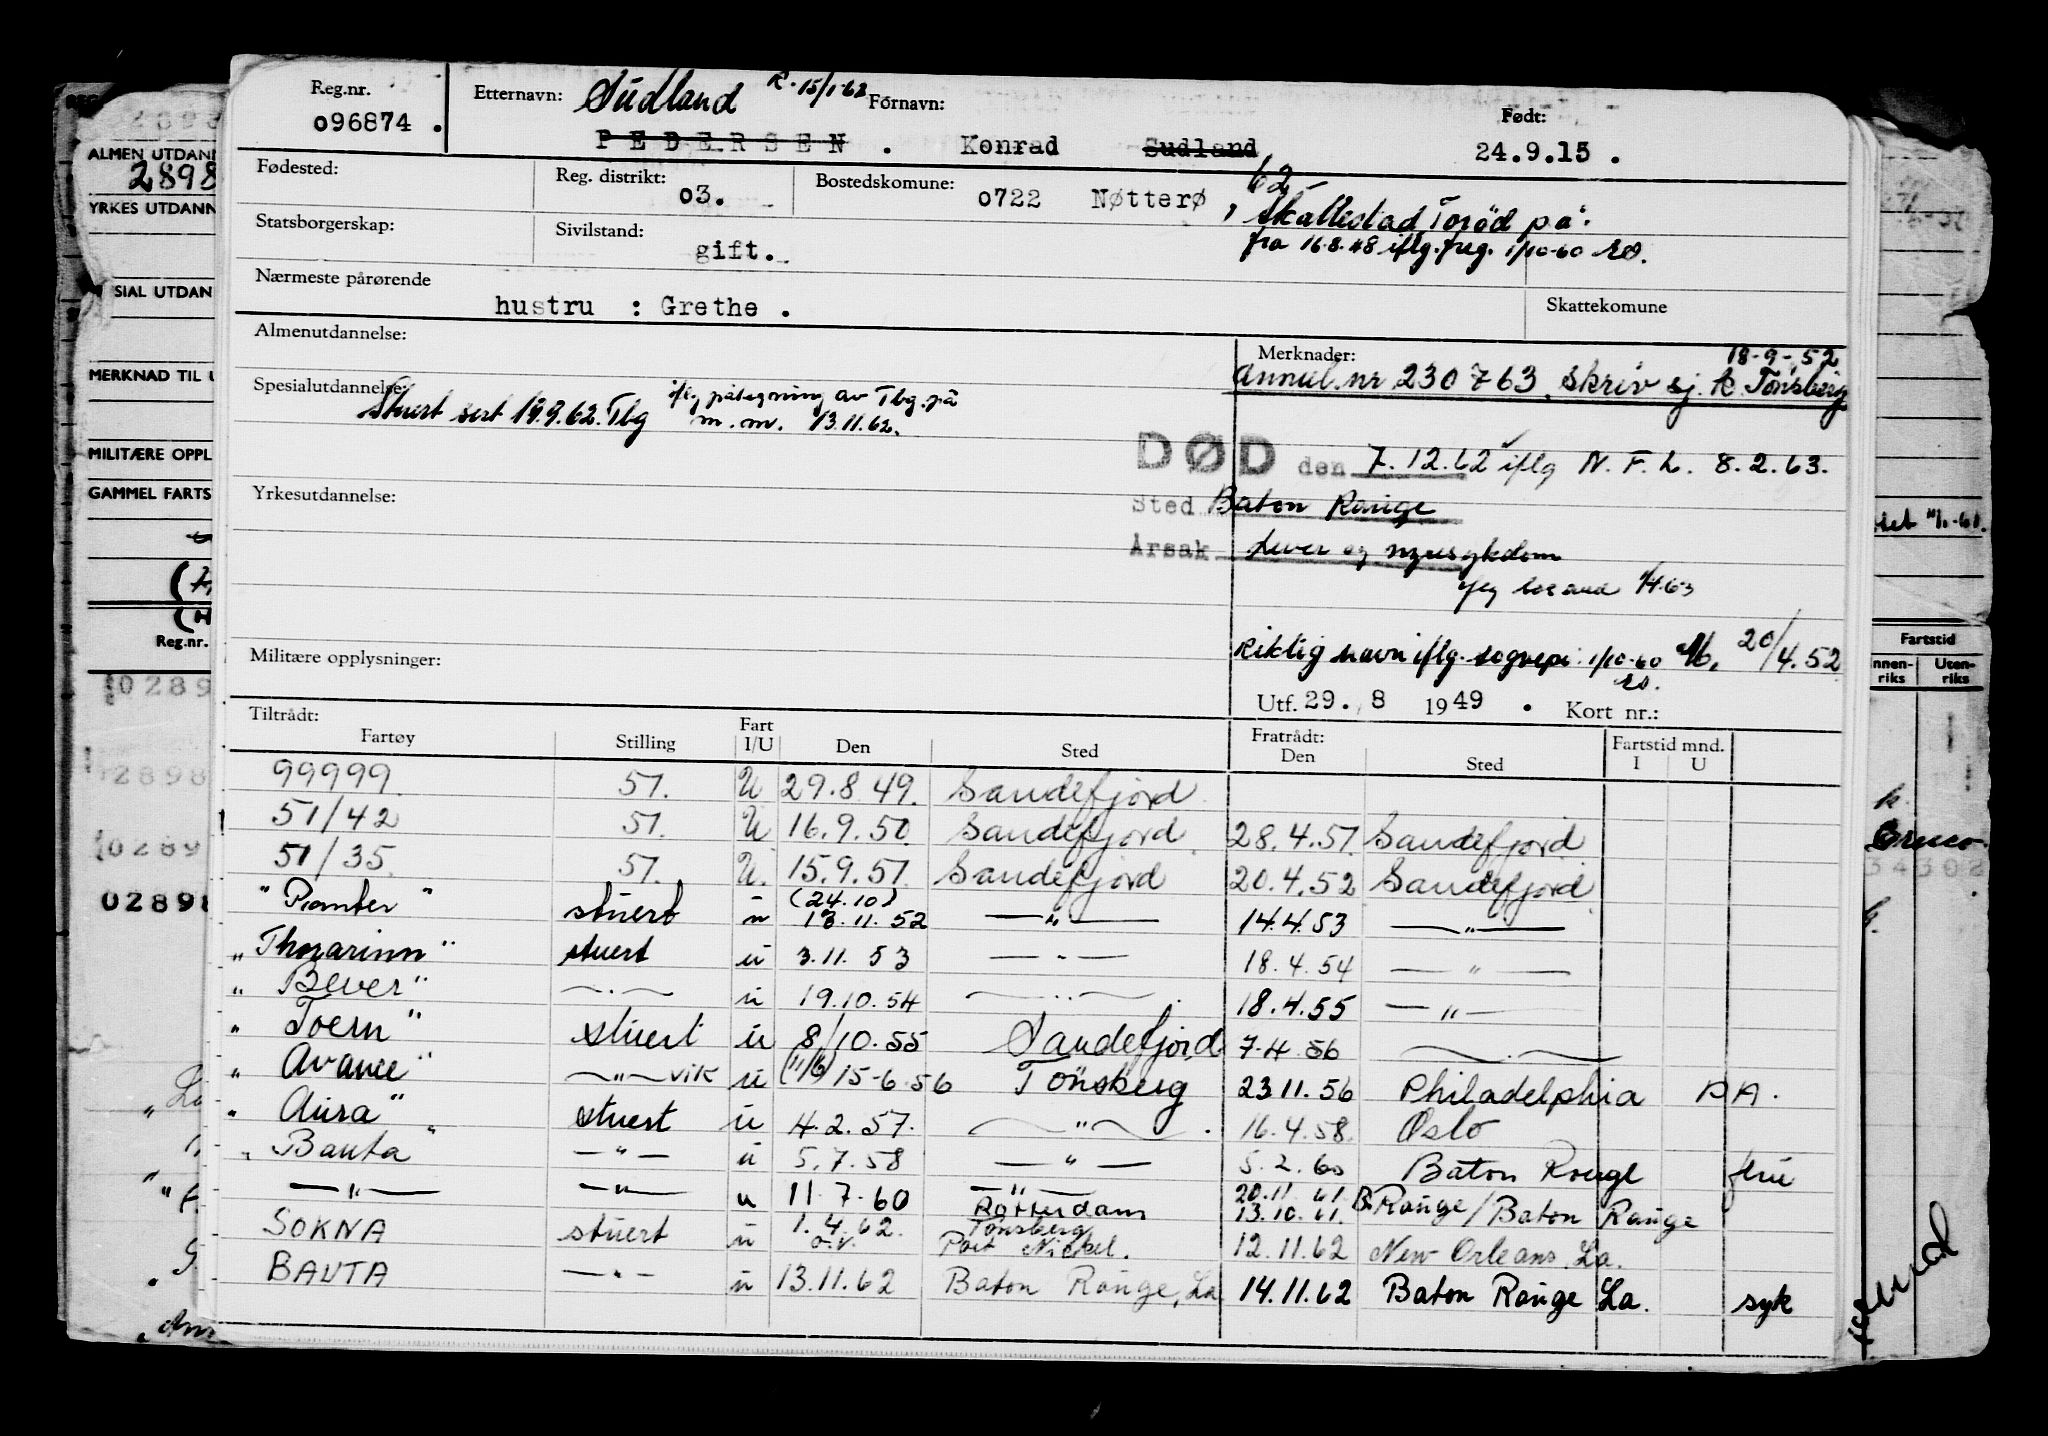 Reg.nr. 096874 .
Etternavn: Sudland R. 15/1-62 Fornavn: Født:
PEDERSEN . Konrad Sudland 24.9.15 .
Fødested: Reg. distrikt: 03. Bostedskomune: 0722 Nøtterø , 62
Skallestad Torød på.
Statsborgerskap: Sivilstand: gift. fra 16.8.48 iflg. freg. 1/10-60
Nærmeste pårørende
hustru : Grethe .
Skattekomune
Almenutdannelse:
Merknader: 18-9-52
Annul. nr 230763. Skriv sj. k. Tønsberg
Spesialutdannelse: Stuert sert 19.9.62. Tbg iflg påtegning av Tbg. på
m.m. 13.11.62.
DØD den 7.12.62 iflg N.F.L. 8.2.63.
Yrkesutdannelse:
Sted Baton Rouge
Årsak Lever og nyresykdom
Riktig navn iflg. 1/10-60 20/4.52
Militære opplysninger:
Utf. 29. 8 1949 . Kort nr.:
Tiltrådt: Fratrådt: Fartstid mnd.
Fartøy Stilling Fart I/U Den Sted Den Sted I U
99999. 57. U 29.8.49. Sandefjord
51/42 57. U 16.9.50. Sandefjord 28.4.51. Sandefjord
51/35. 57. U. 15.9.51. Sandefjord 20.4.52 Sandefjord
"Panter" stuert u (24.10) 13.11.52 —"— 14.4.53 —"—
"Thorarinn" stuert u 3.11.53 —"— 18.4.54 —"—
"Bever" —"— u 19.10.54 —"— 18.4.55 —"—
"Toern" stuert u 8/10.55 Sandefjord 7.4.56 —"—
"Avance" —"— vik u (11/6) 15-6.56 Tønsberg 23.11.56 Philadelphia PA.
"Aura" stuert u 4.2.57. —"— 16.4.58. Oslo
"Bauta" —"— u 5.7.58 —"— 5.2.60 Baton Rouge
—"— —"— u 11.7.60 —"— Rotterdam 20.11.61 13.10.61. B. Rouge / Baton Rouge
SOKNA stuert u 1.4.62. Tønsberg Port Nickel. 12.11.62 New Orleans. La.
BAUTA —"— u 13.11.62 Baton Rouge, La 14.11.62 Baton Rouge La. syk
ALMEN UTDANN
2898
YRKES UTDANN
SIAL UTDAN
MERKNAD TIL U
MILITÆRE OPPL
GAMMEL FARTS
Reg.nr.
02898
Fartstid
Innen-
riks
Uten-
riks
34302